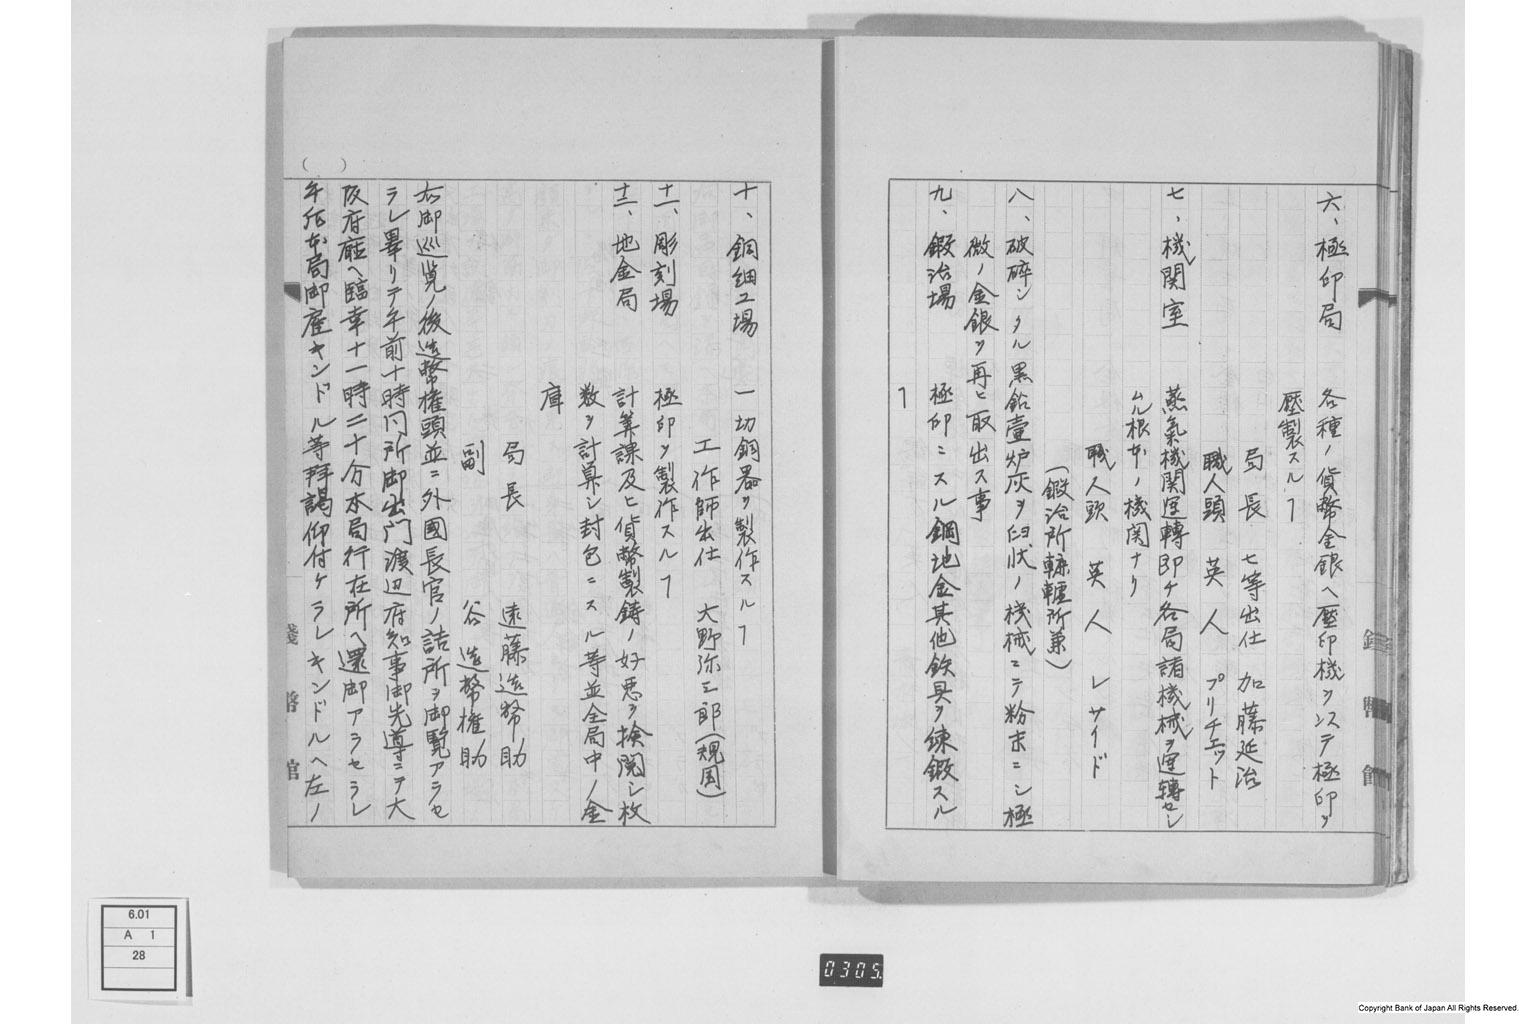 六、極印局　各種ノ貨幣金銀ヘ壓印機ヲシステ極印ヲ
壓製スルヿ
局長　七等出仕　加藤延治
職人頭　英人　プリチエット
七、機関室　蒸氣機関運轉即チ各局諸機械ヲ運轉セシ
ムル根本ノ機関ナリ
職人頭　英人　レサイド
(鍛冶所轆轤所兼)
八、破碎シタル黒鉛壷炉灰ヲ臼状ノ機械ニテ粉末ニシ極
微ノ金銀ヲ再ヒ取出ス事
九、鍛冶場　極印ニスル鋼地金其他鉄具ヲ錬鍛スル
ヿ
十、銅細工場　一切銅器ヲ製作スルヿ
工作師出仕　大野弥三郎(規周)
十一、彫刻場　極印ヲ製作スルヿ
十二、地金局　計算課及ヒ貨幣製鋳ノ好悪ヲ検閲シ枚
数ヲ計算シ封包ニスル等並全局中ノ金
庫
局長　遠藤造幣助
副　谷造幣権助
右御巡覧ノ後造幣権頭並ニ外國長官ノ詰所ヲ御覧アラセ
ラレ畢リテ午前十時同所御出門渡辺府知事御先導ニテ大
阪府廰ヘ臨幸十一時二十分本局行在所ヘ還御アラセラレ
午後本局御雇キンドル等拝謁仰付ケラレキンドルヘ左ノ
(　)
銭幣館
6.01
A 1
28
0305.
Copyright Bank of Japan All Rights Reserved.